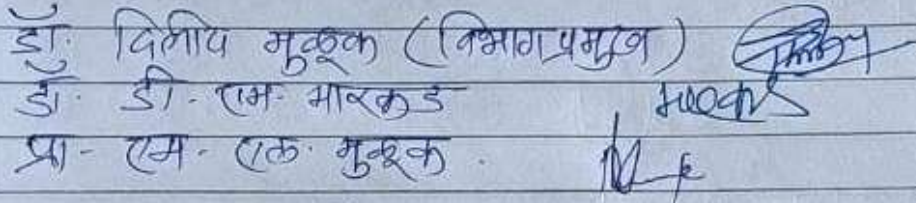 डॉ. दिलीप मुळूक (विभागप्रमुख)
डॉ. डी. एम. मारकड
प्रा - एम. एल. मुळूक.